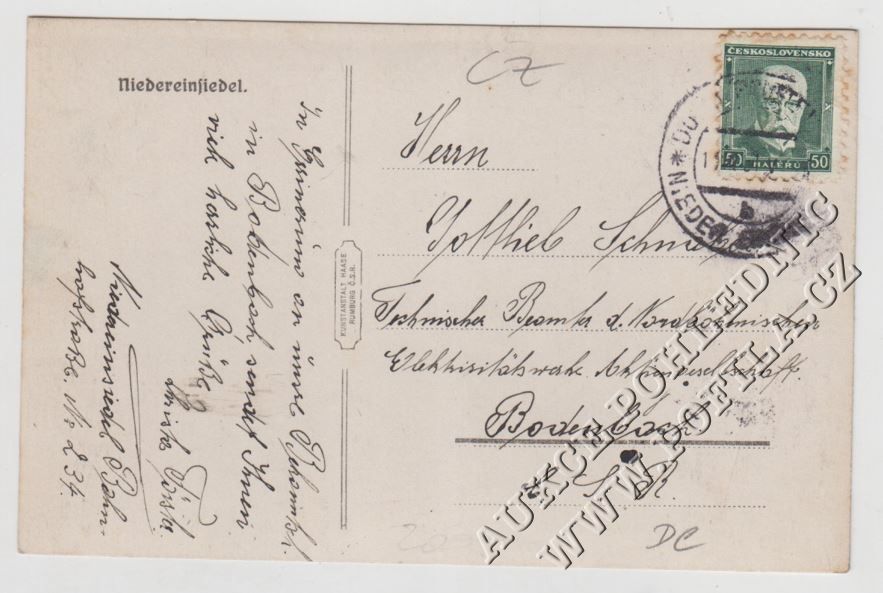 Niedereinsiedel.
In Erinnerung an unsre Bekanntsch.
in Bodenbach sendet Ihnen
viele herzliche Grüße
Niedereinsiedel Bahn-
hofstraße. No 234.
KUNSTANSTALT HAASE
RUMBURG Č.S.R.
CZ
ČESKOSLOVENSKO
50 HALÉŘŮ 50
NIEDER
b
Herrn
Gottlieb
Technischer Beamter d. Nordböhmischen
Elektrizitätswerke Aktiengesellschaft.
Bodenbach
Č.S.R.
DC
AUKCE POHLEDNIC
WWW.POFILA.CZ